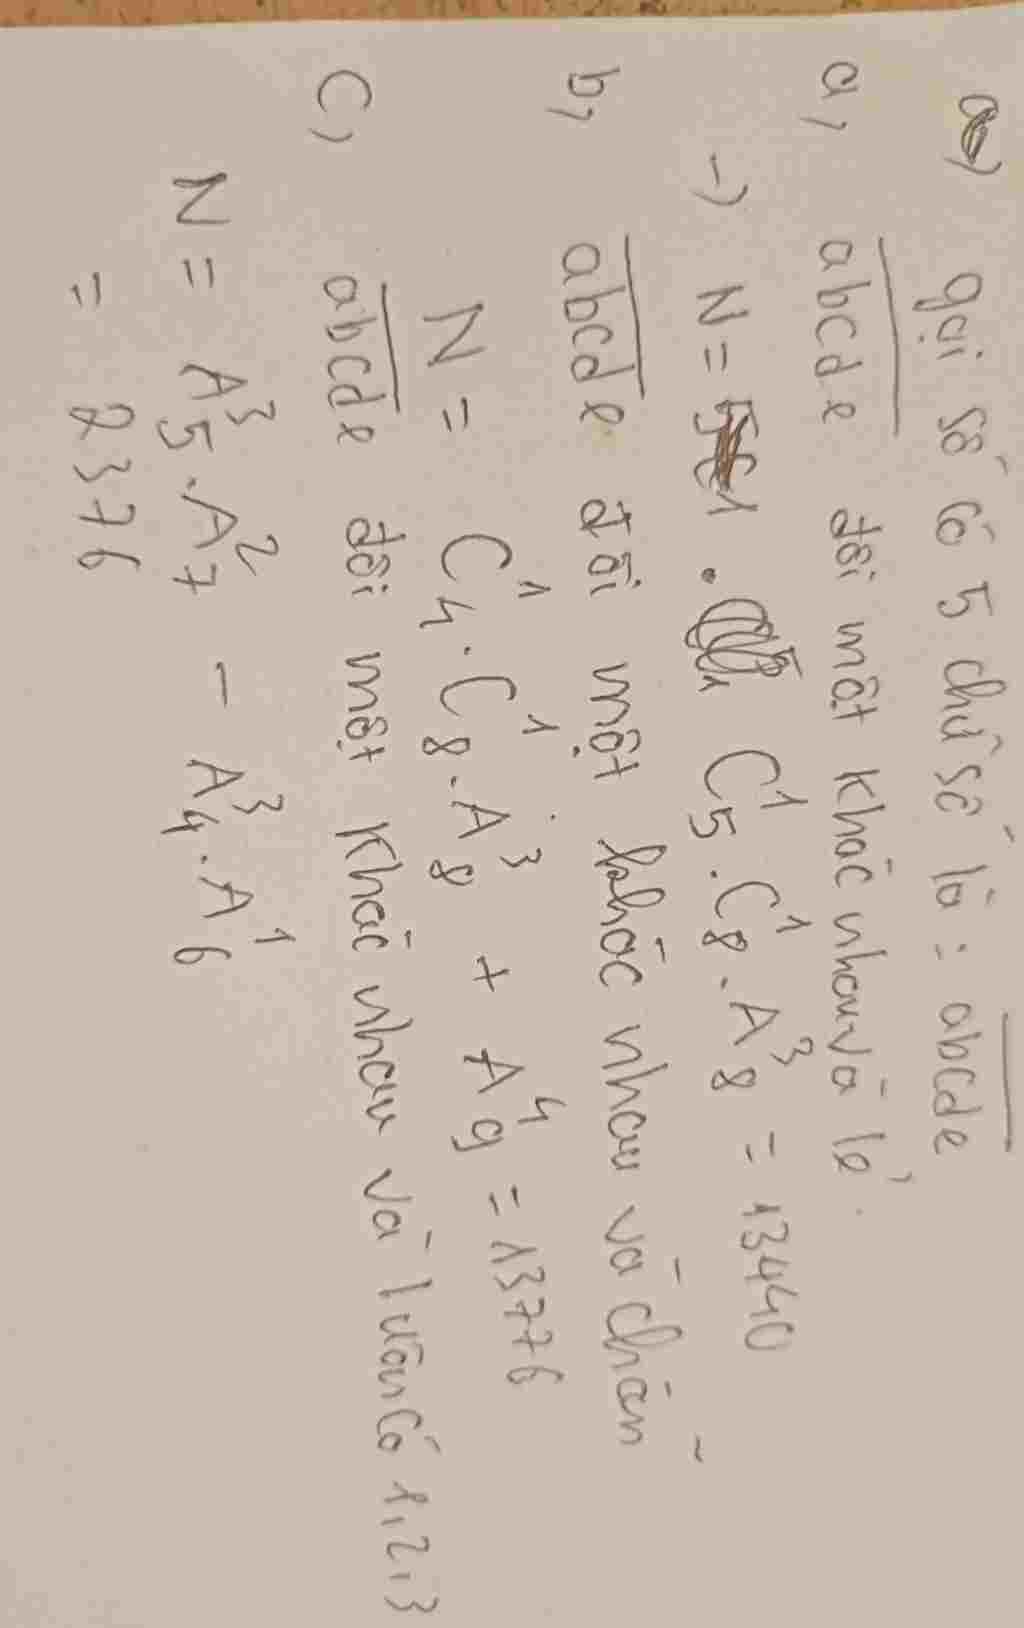 gọi số có 5 chữ số là: abcde
a, abcde đôi một khác nhau và lẻ.
→ N = 1. C¹₅. C¹₈. A³₈ = 13440
b, abcde đôi một khác nhau và chẵn
N = C¹₄. C¹₈. A³₈ + A⁴₉ = 13776
c, abcde đôi một khác nhau và luôn có 1,2,3
N = A³₅. A²₇ - A³₄. A¹₆
= 2376